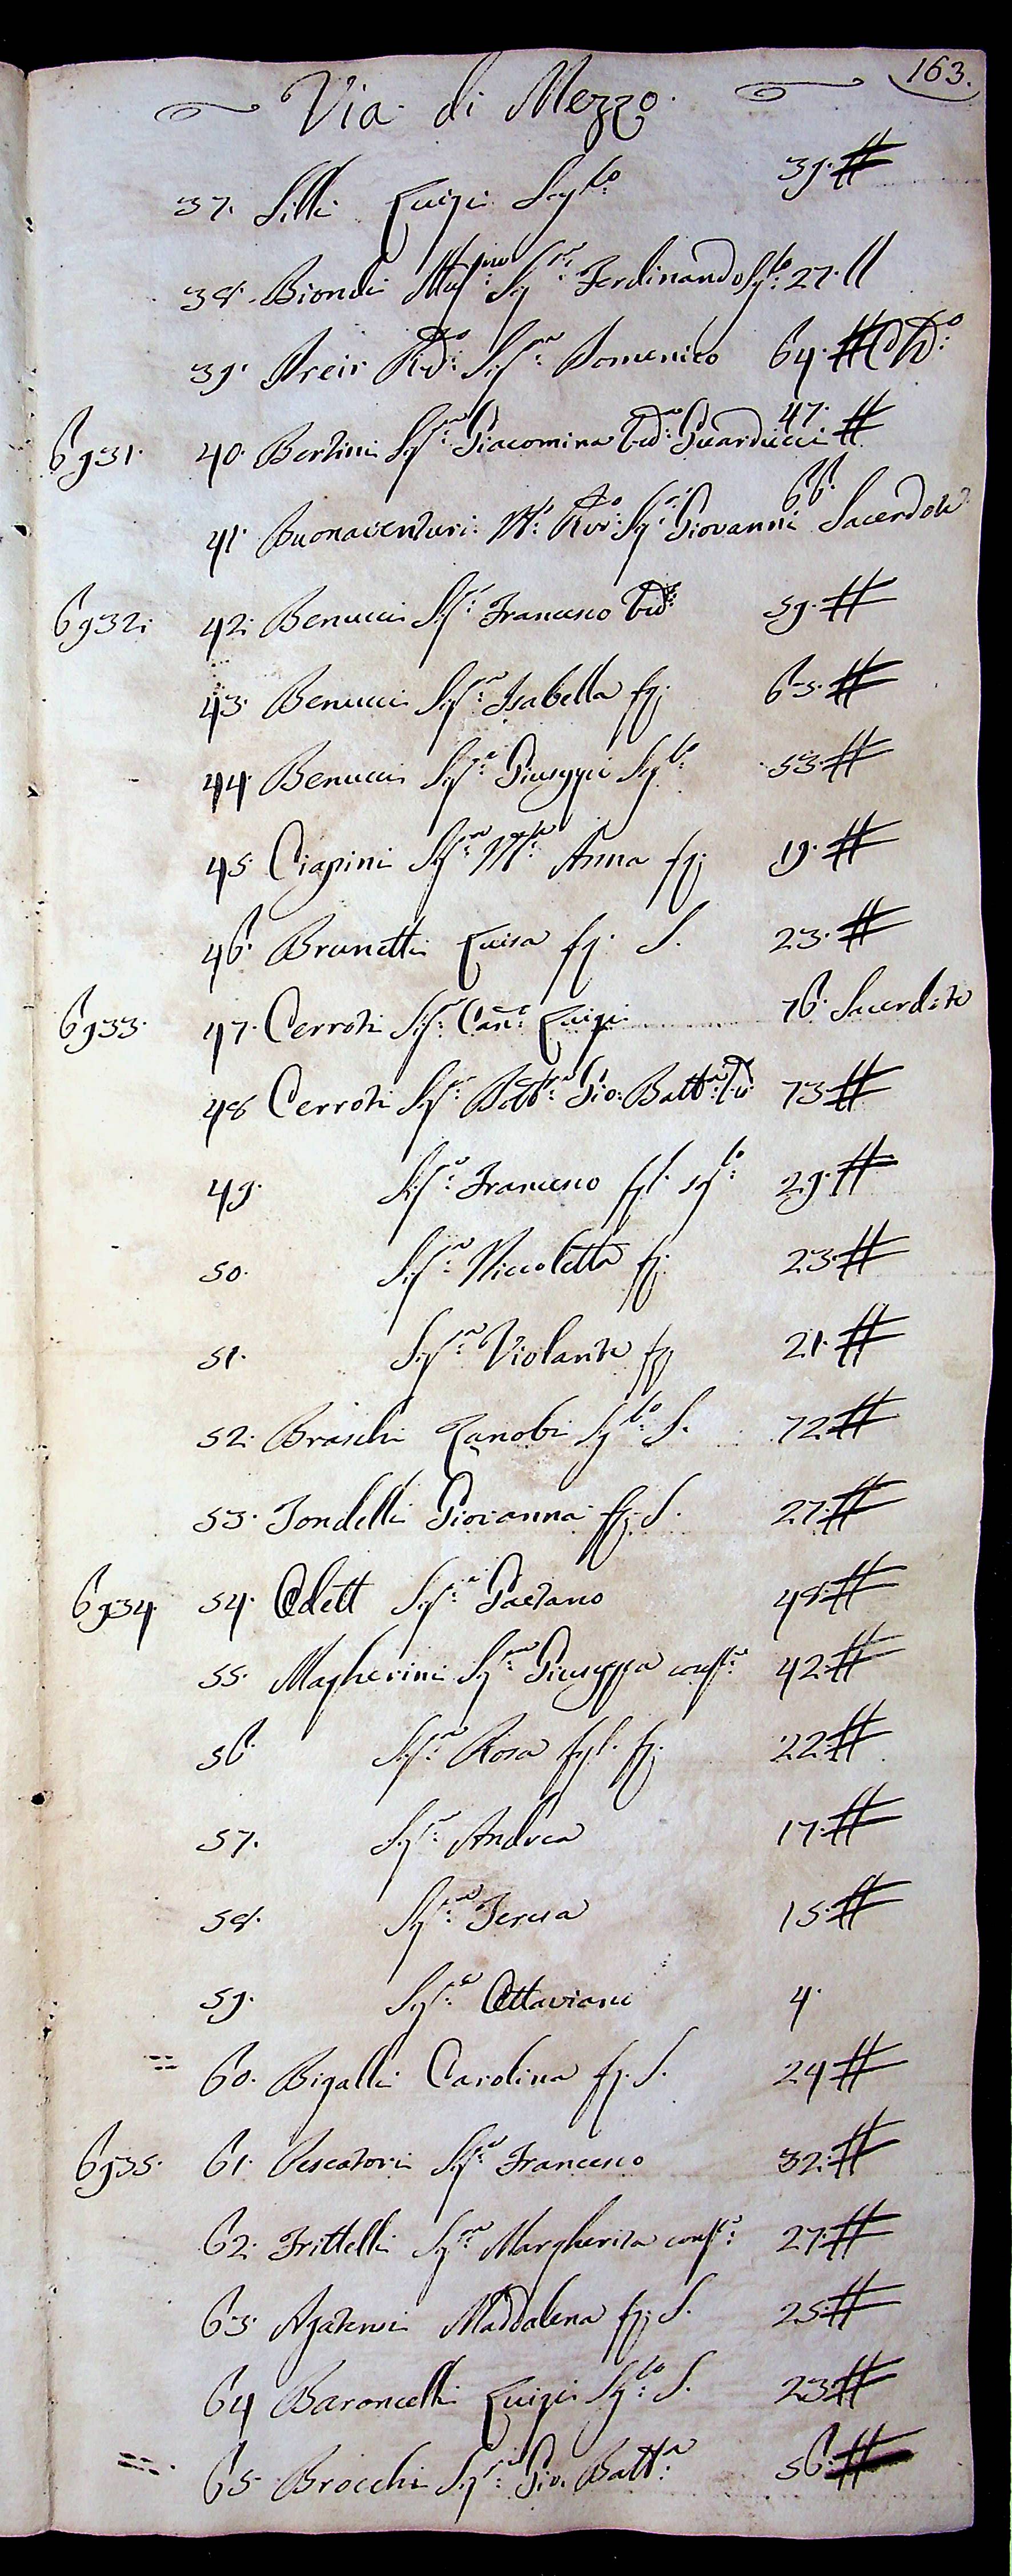 163.
Via di Mezzo.
37. Silli Luigi Sg.lo 39. #
38. Biondi Ill.mo Sig.r Ferdinando Sg.lo 27. ll
39. Preir Rd.o Sig.re Domenico 64. #
6931. 40. Bertini Sig.ra Giacomina Ved.a Guarducci 47. #
41. Buonaventuri M.o Rev.do Sig.r Giovanni 66. Sacerdote
6932. 42. Benucci Sig.r Francesco Ved.o 59. #
43. Benucci Sig.ra Isabella fg. 65. #
44. Benucci Sig.e Giuseppe Sg.lo 53. #
45. Ciapini Sig.ra M.a Anna fg. 19. #
46. Brunetti Luisa fg. S. 23. #
6933. 47. Cerroti Sig.r Can.co Luigi 76. Sacerdote
48. Cerroti Sig.r Dott.re Gio: Batt.a V.o 73. #
49. Sig.e Francesco fgl. sg.lo 29. #
50. Sig.ra Niccoletta fg. 23. #
51. Sig.ra Violante fg 21. #
52. Braschi Zanobi Sg.lo S. 72 #
53. Fondelli Giovanna fg. S. 27. #
6934. 54. Odett Sig.e Gaetano 48. #
55. Magherini Sig.ra Giuseppa cons.e 42. #
56. Sig.ra Rosa fgl. fg. 22. #
57. Sig.e Andrea 17. #
58. Sig.ra Teresa 15. #
59. Sig.e Ottaviano 4.
60. Bigalli Carolina fg. S. 24 #
6935. 61. Pescatori Sig.e Francesco 32. #
62. Frittelli Sig.ra Margherita cons.e 27. #
63. Maddalena fg. S. 25. #
64 Baroncelli Luigi Sg.lo S. 23 #
65. Brocchi Sig.e Gio. Batt.a 56. #